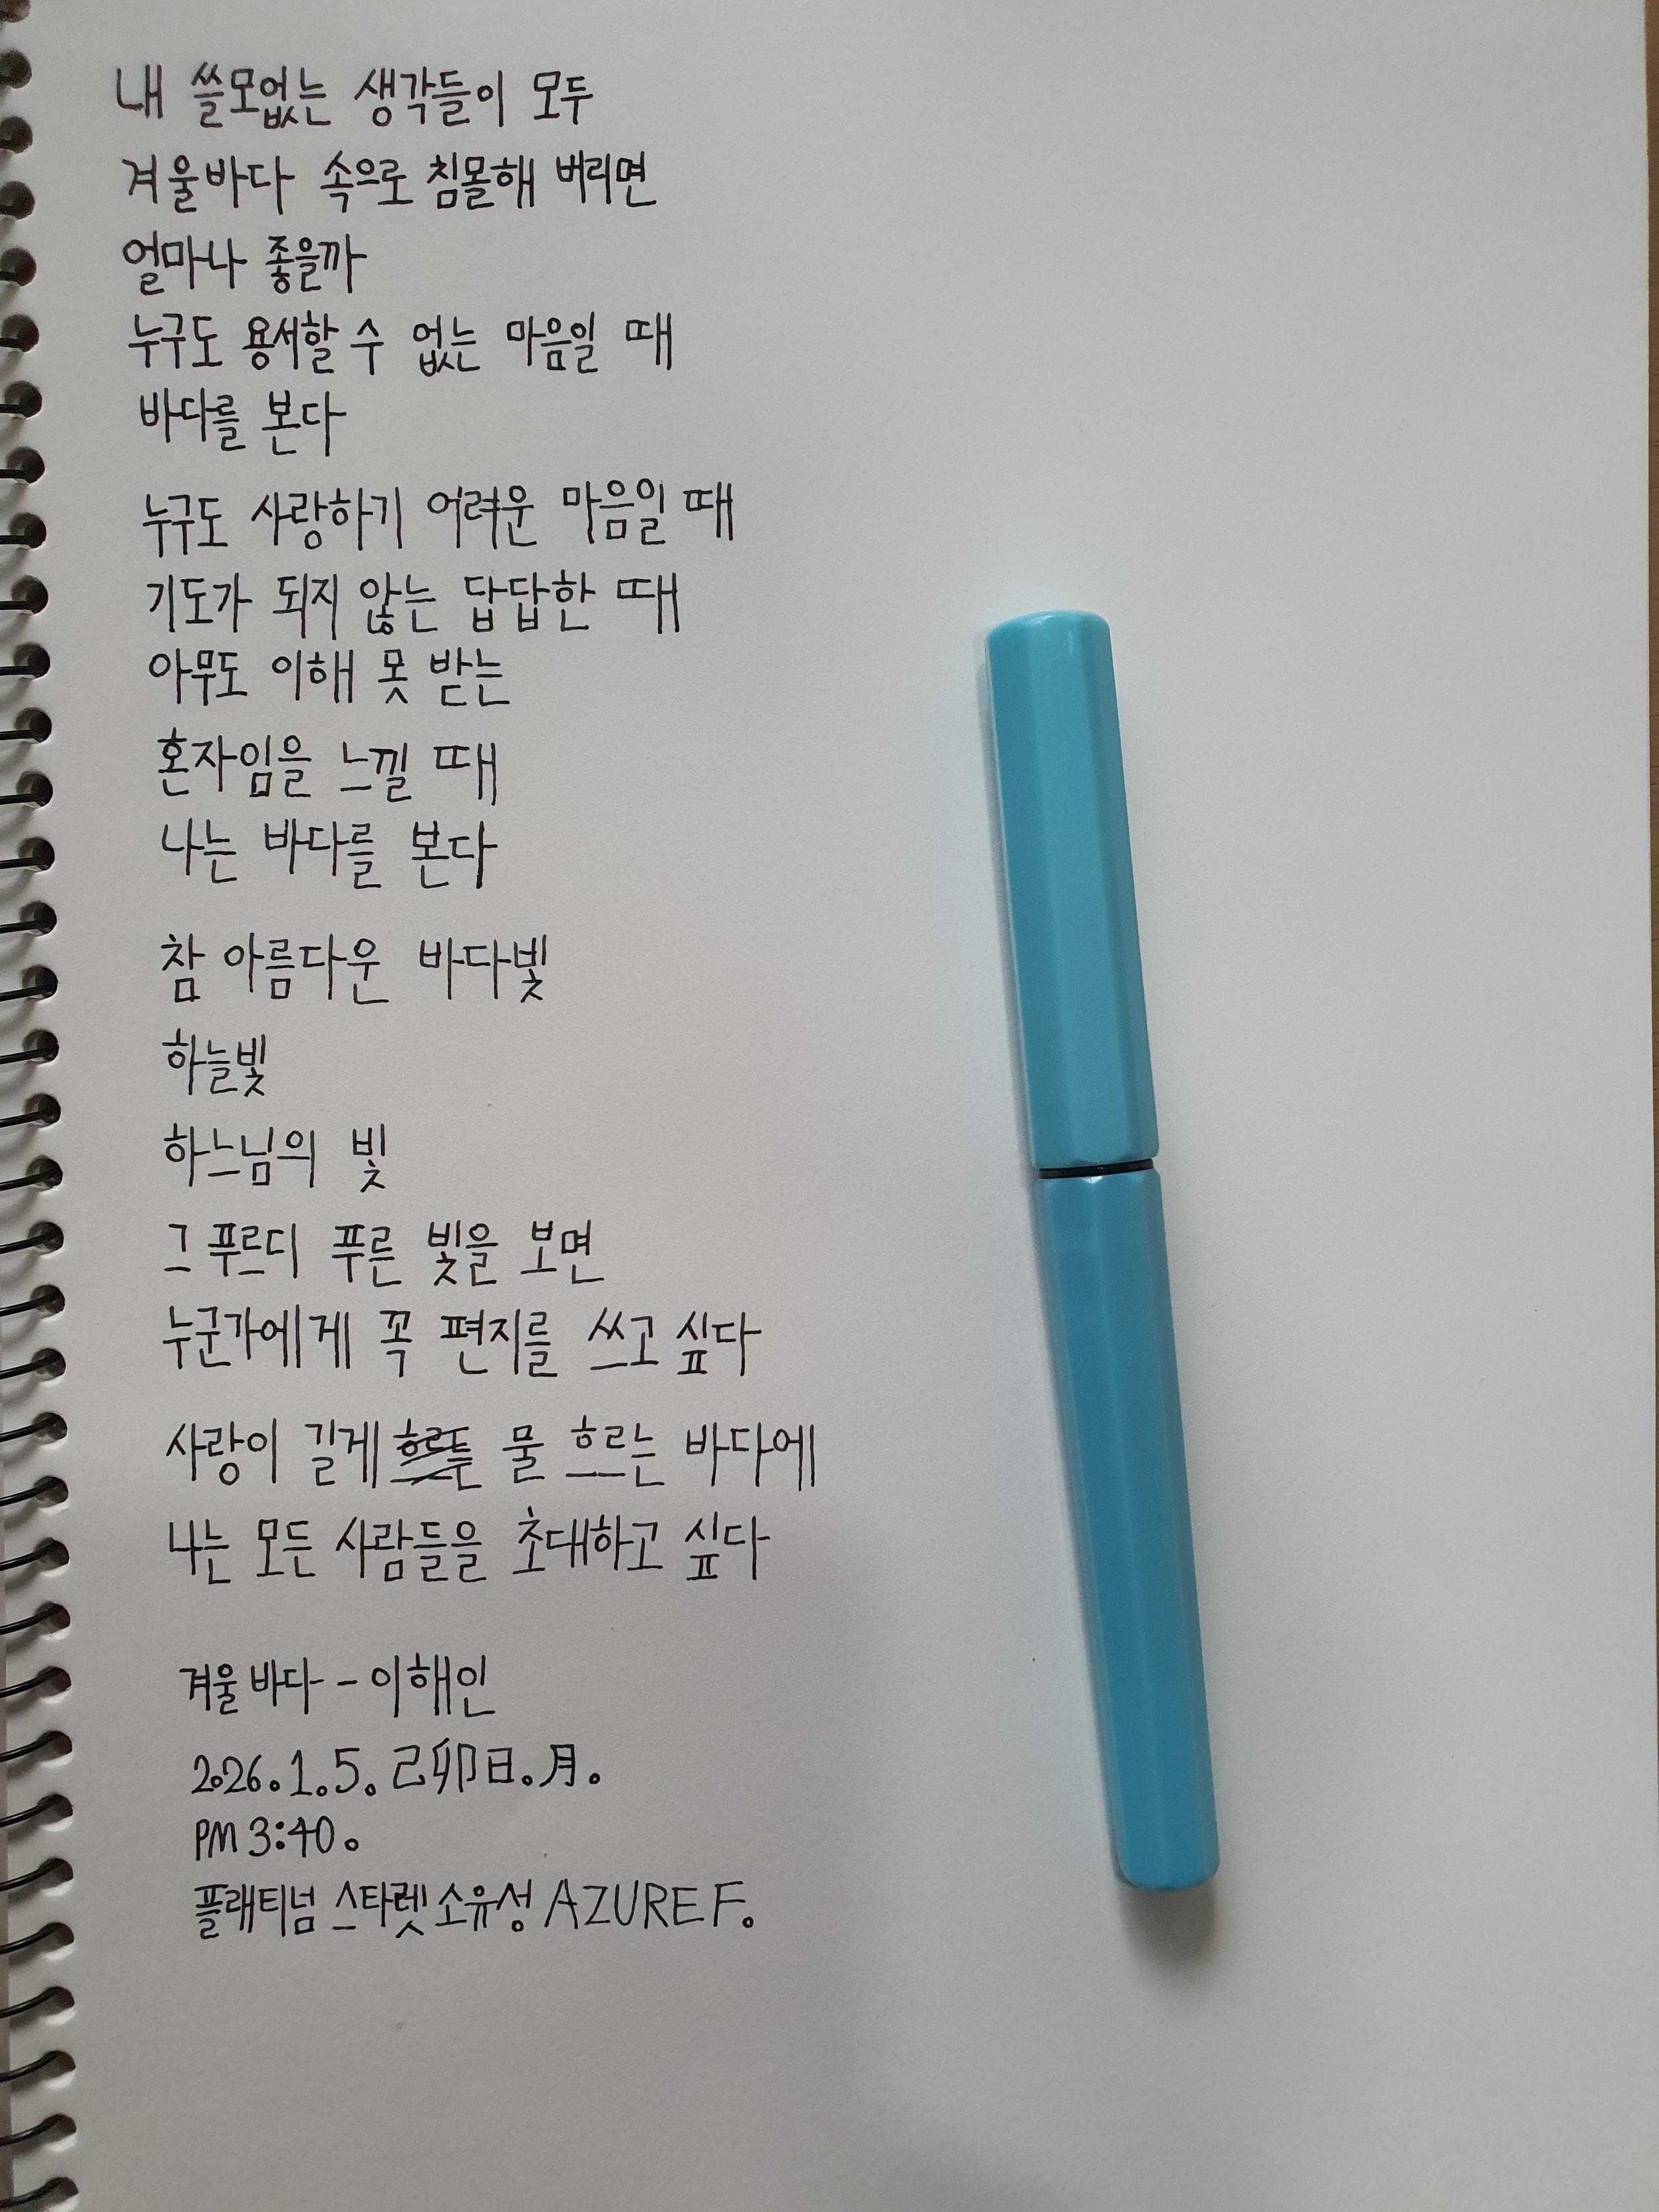 내 쓸모없는 생각들이 모두
겨울바다 속으로 침몰해 버리면
얼마나 좋을까
누구도 용서할 수 없는 마음일 때
바다를 본다
누구도 사랑하기 어려운 마음일 때
기도가 되지 않는 답답한 때
아무도 이해 못 받는
혼자임을 느낄 때
나는 바다를 본다
참 아름다운 바다빛
하늘빛
하느님의 빛
그 푸르디 푸른 빛을 보면
누군가에게 꼭 편지를 쓰고 싶다
사랑이 길게 물 흐르는 바다에
나는 모든 사람들을 초대하고 싶다
겨울 바다 - 이해인
2026. 1. 5. 己卯日. 月.
PM 3:40.
플래티넘 스타렛 소유성 AZURE F.